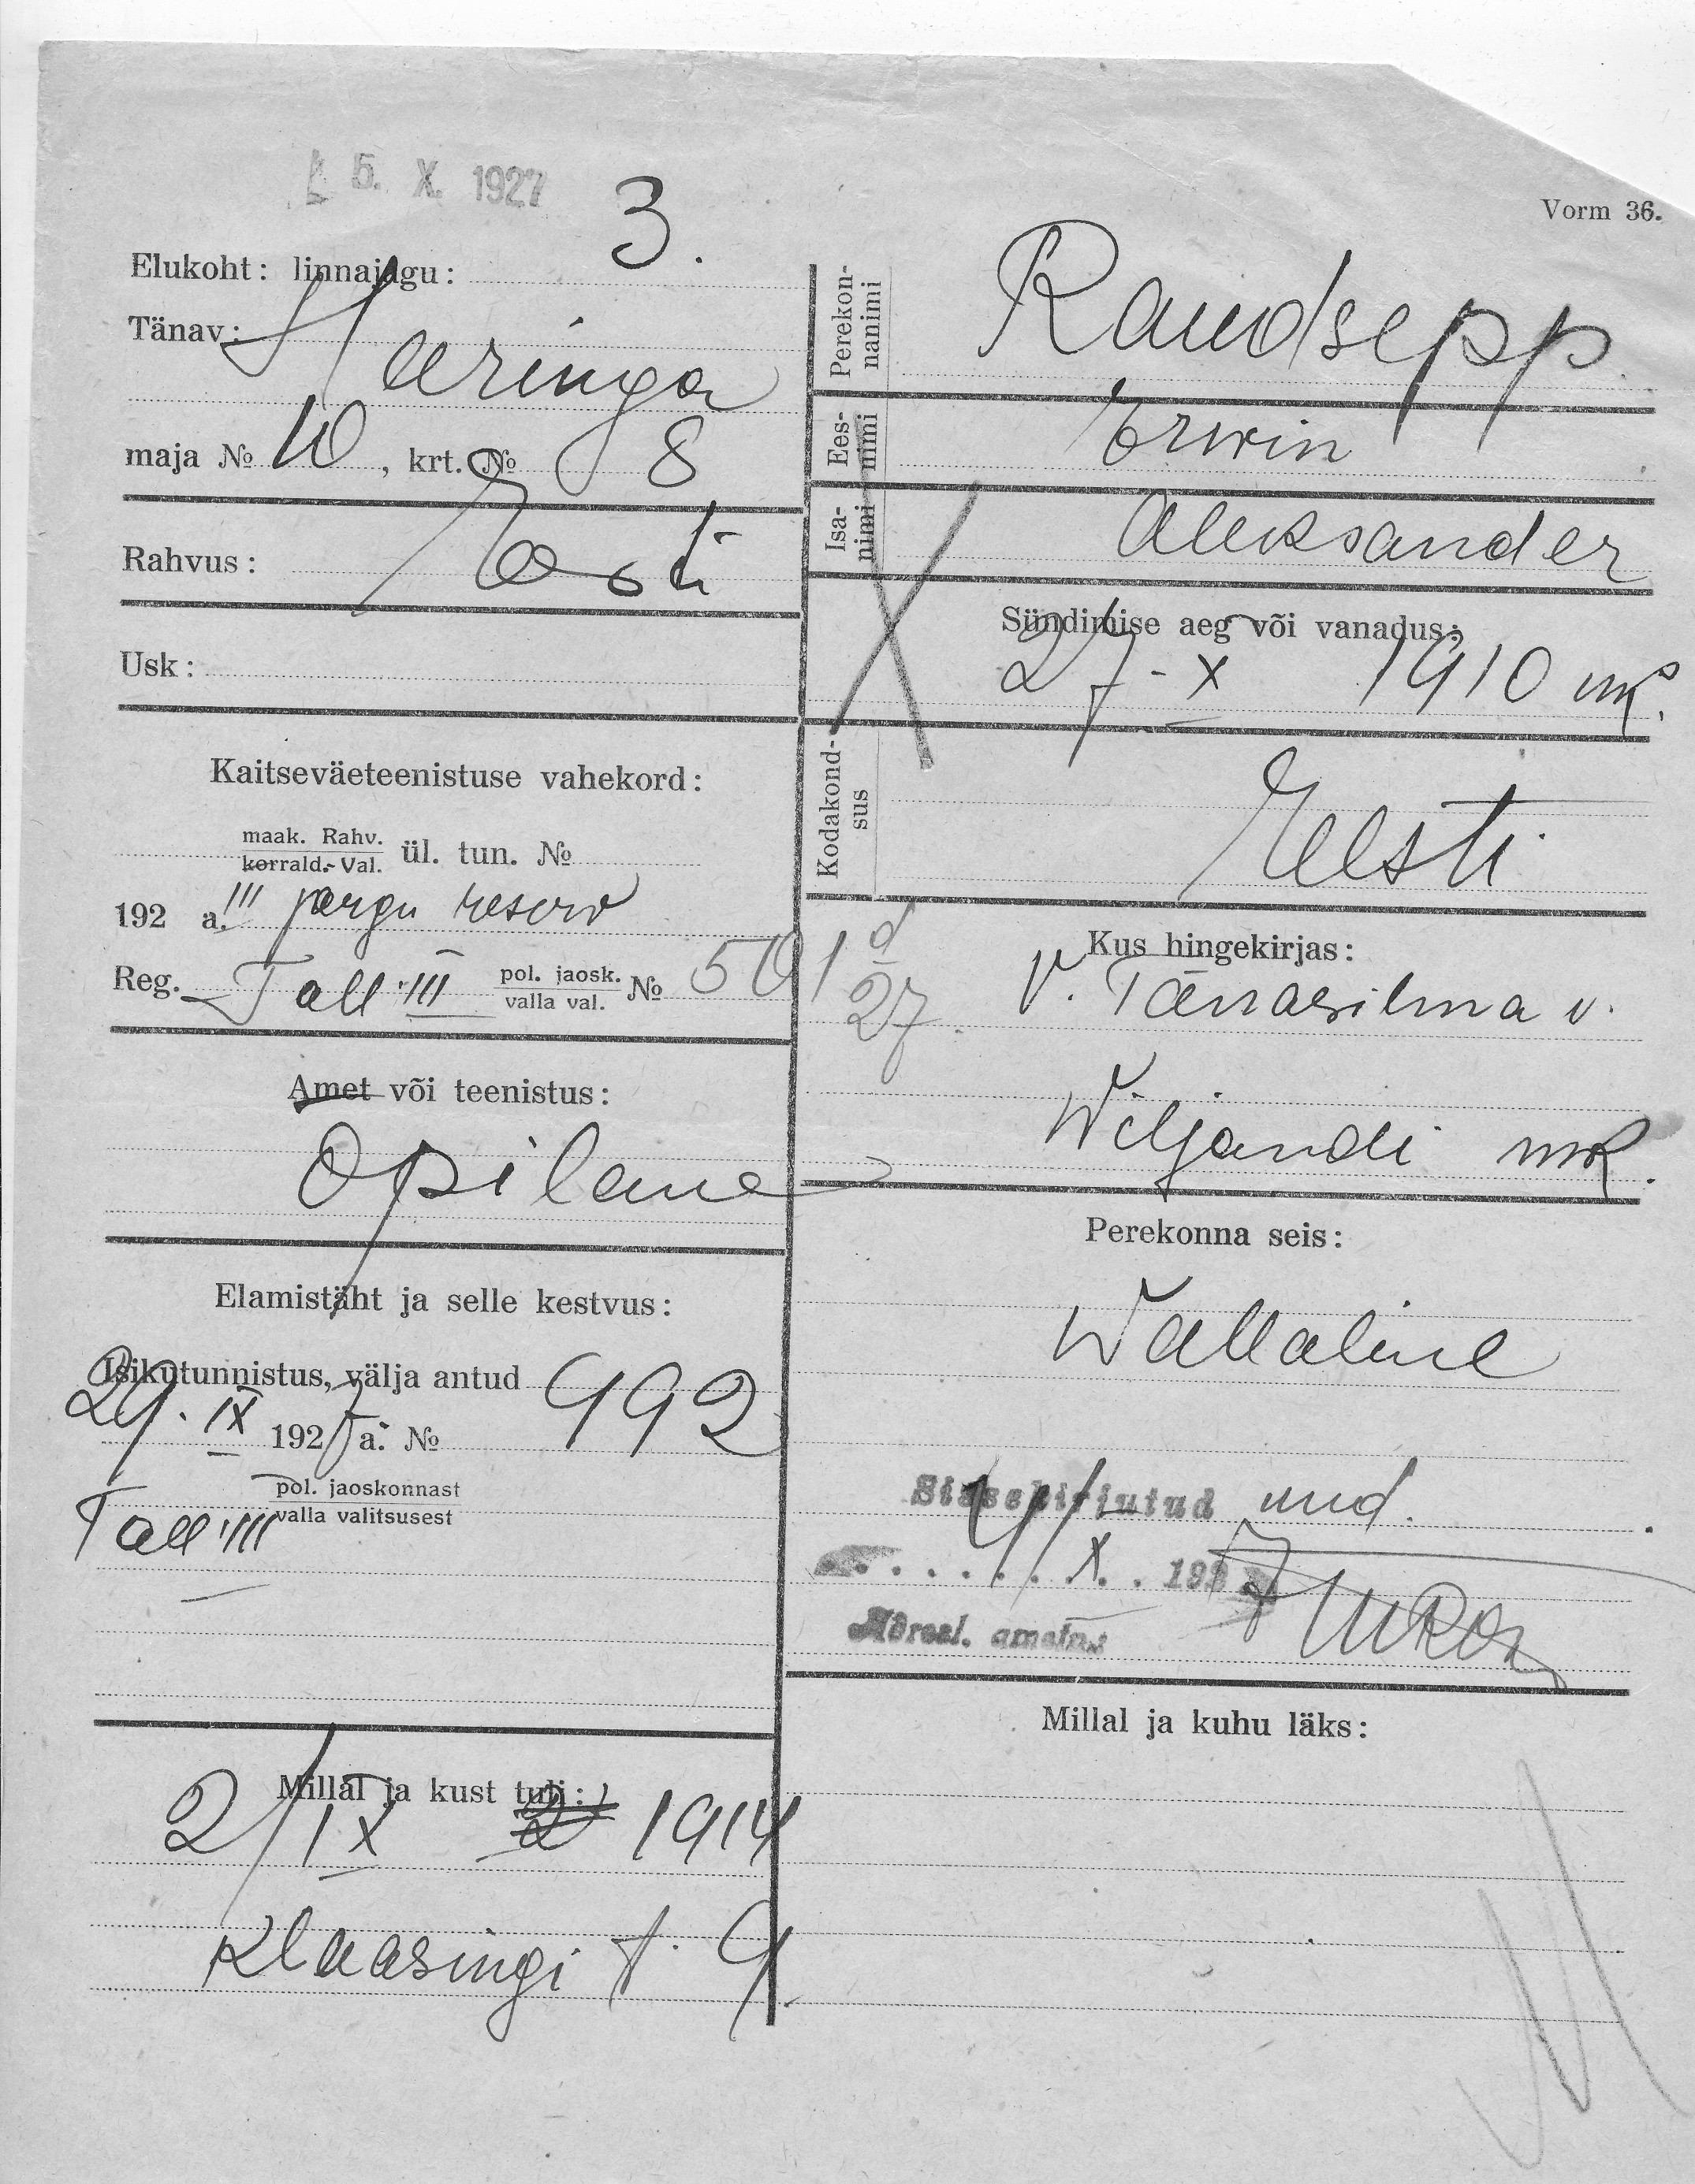 5. X. 1927
3.
Vorm 36.
Elukoht: linnajagu:
Tänav: Heeringa
maja № 10, krt. № 8
Rahvus: Eesti
Usk:
Kaitseväeteenistuse vahekord:
maak. Rahv.
korrald.-Val. ül. tun. №
192 a. III järgu reserv
Reg. Tall. III pol. jaosk. № 501 d
valla val. 27.
Amet või teenistus:
Opilane
Elamistäht ja selle kestvus:
Isikutunnistus, välja antud
29. IX 1927 a. № 992
pol. jaoskonnast
Tall. III valla valitsusest
Millal ja kust tuli:
2/IX 1914
Klaasingi t. 9
Perekonnanimi Raudsepp
Eesnimi Erwin
Isanimi Aleksander
Sündimise aeg või vanadus:
27-X 1910
Kodakondsus Eesti
Kus hingekirjas:
V. Tänasilma v.
Wiljandi mk.
Perekonna seis:
Wallaline
Sissekirjutud
4/X. 1927
Adressl. ametn.
Millal ja kuhu läks: